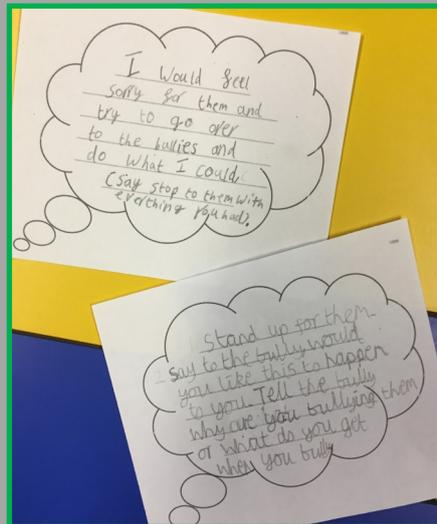 I would feel
sorry for them and
try to go over
to the bullies and
do what I could.
(say stop to them with
everthing you had).
stand up for them
say to the bully would
you like this to happen
to you Tell the bully
why are you bullying them
or what do you get
when you bully